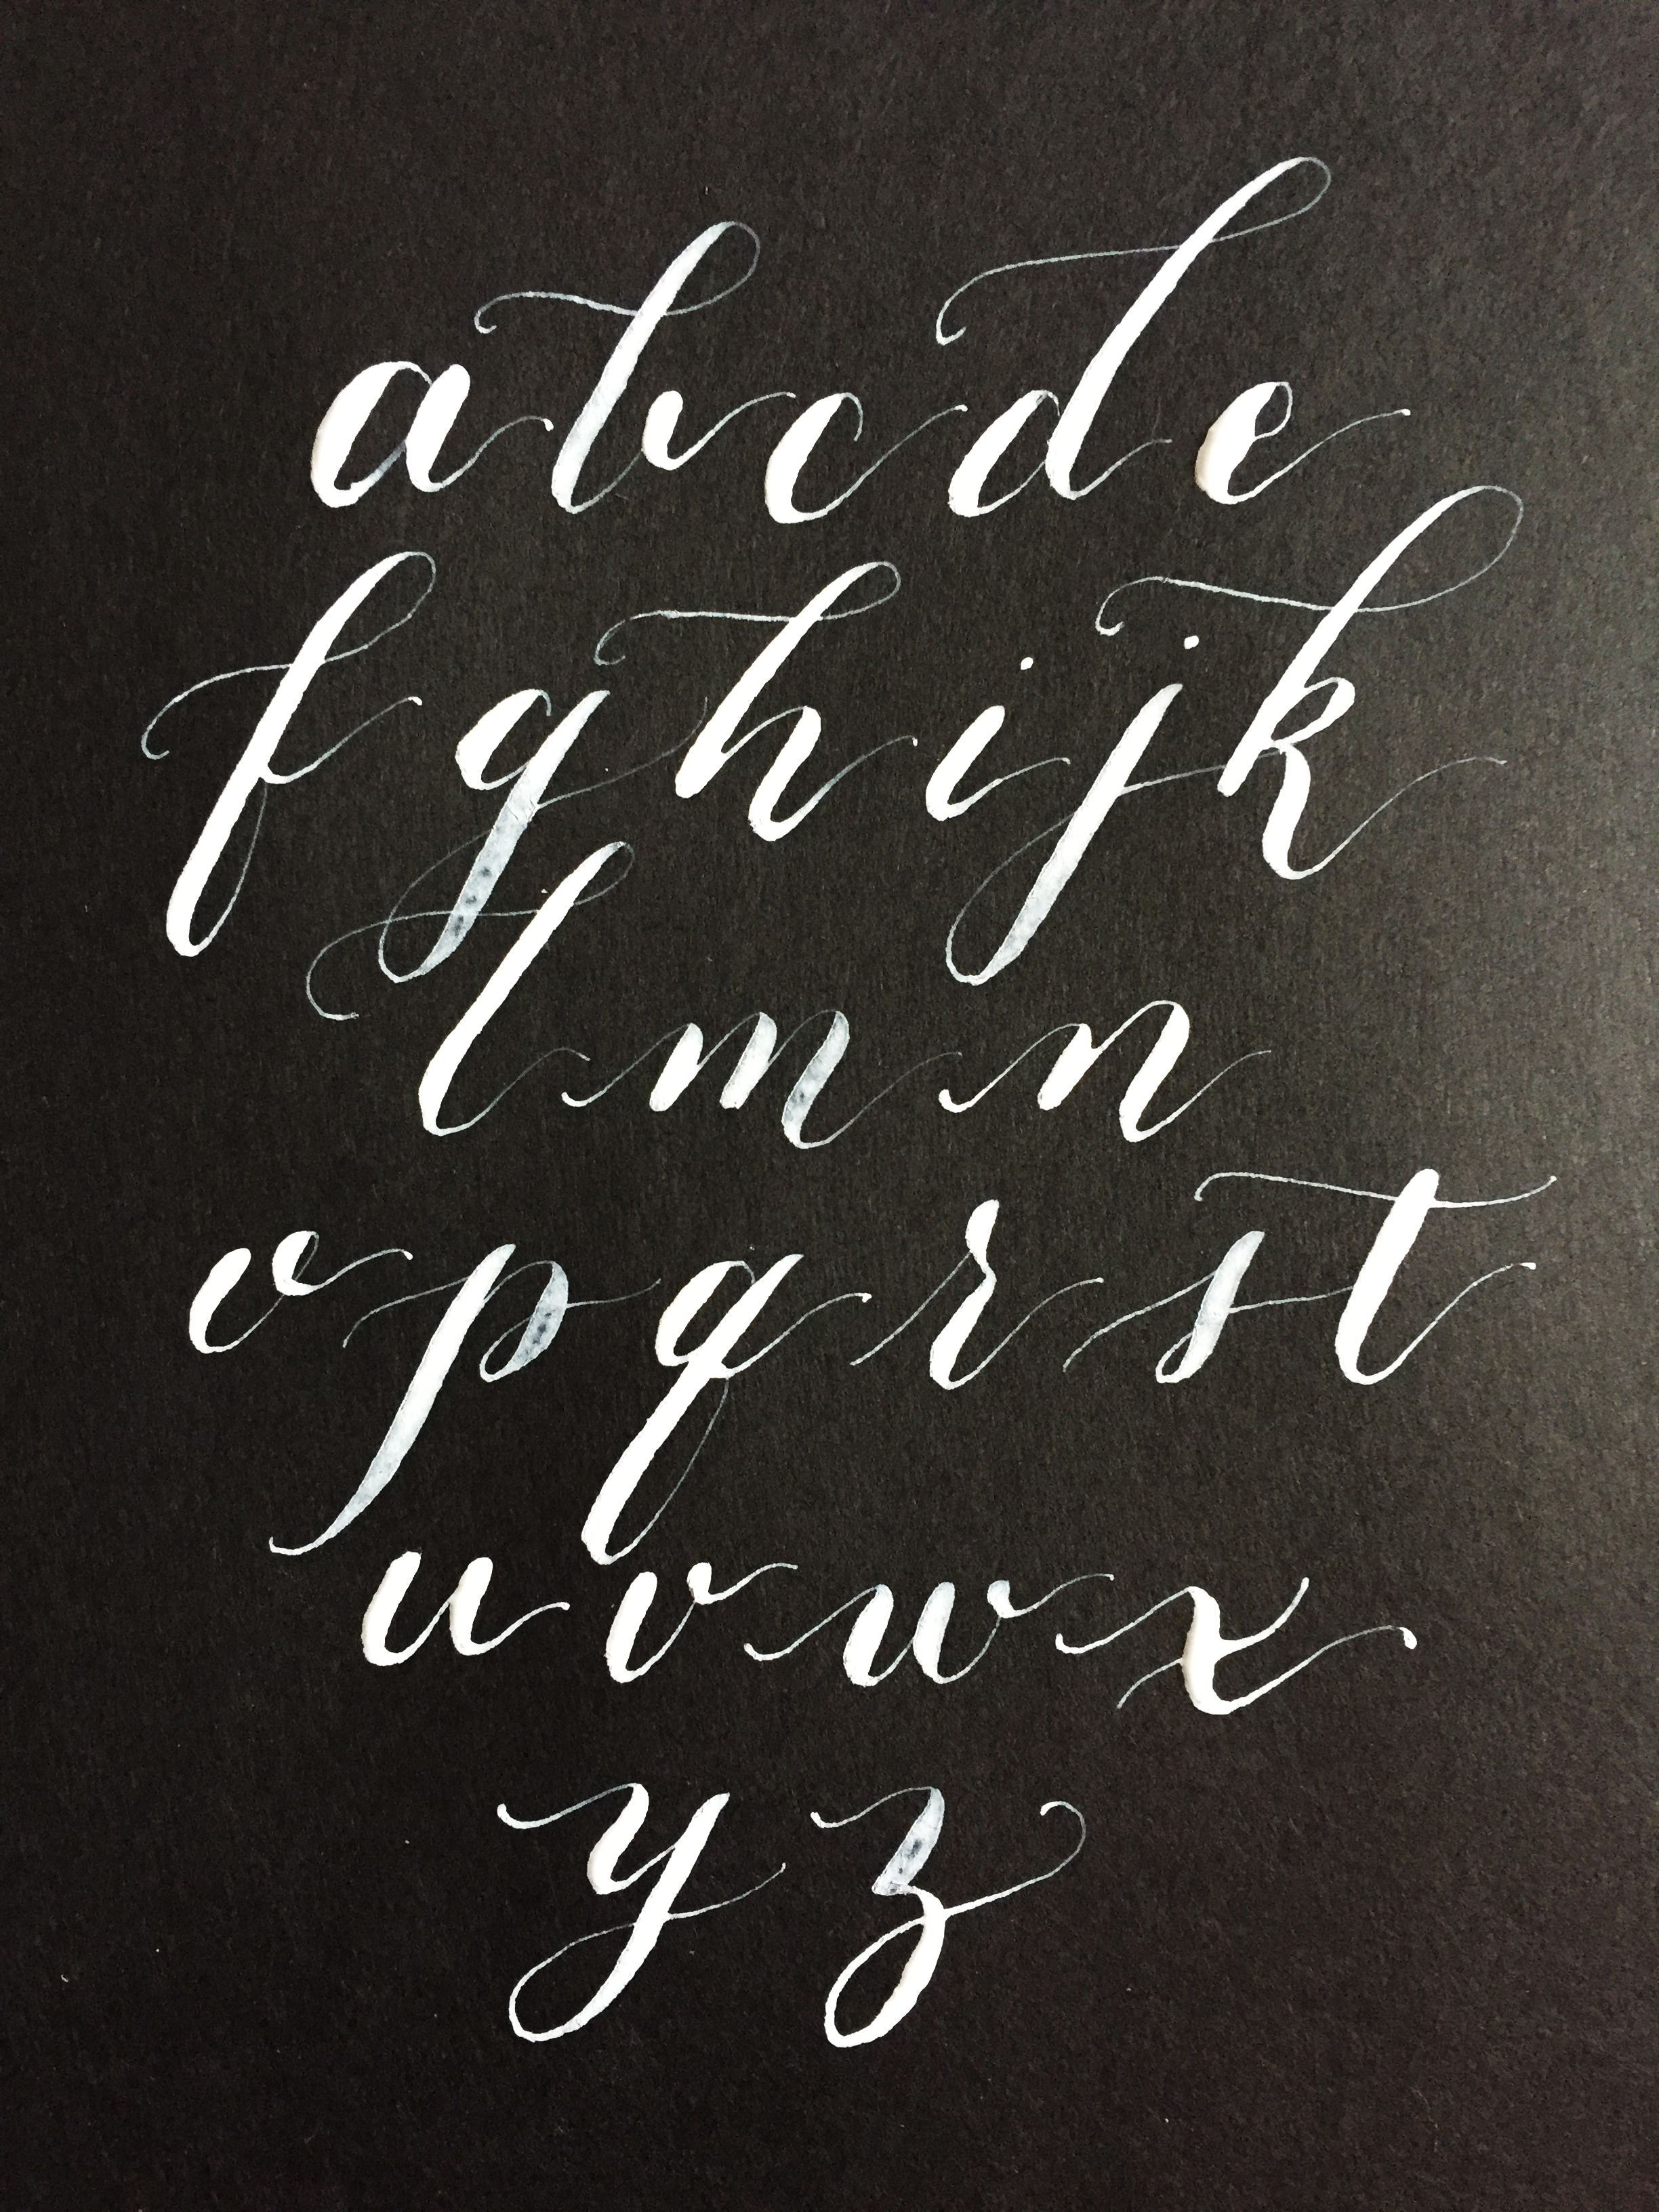 a b c d e
f g h i j k
l m n
o p q r s t
u v w x
y z